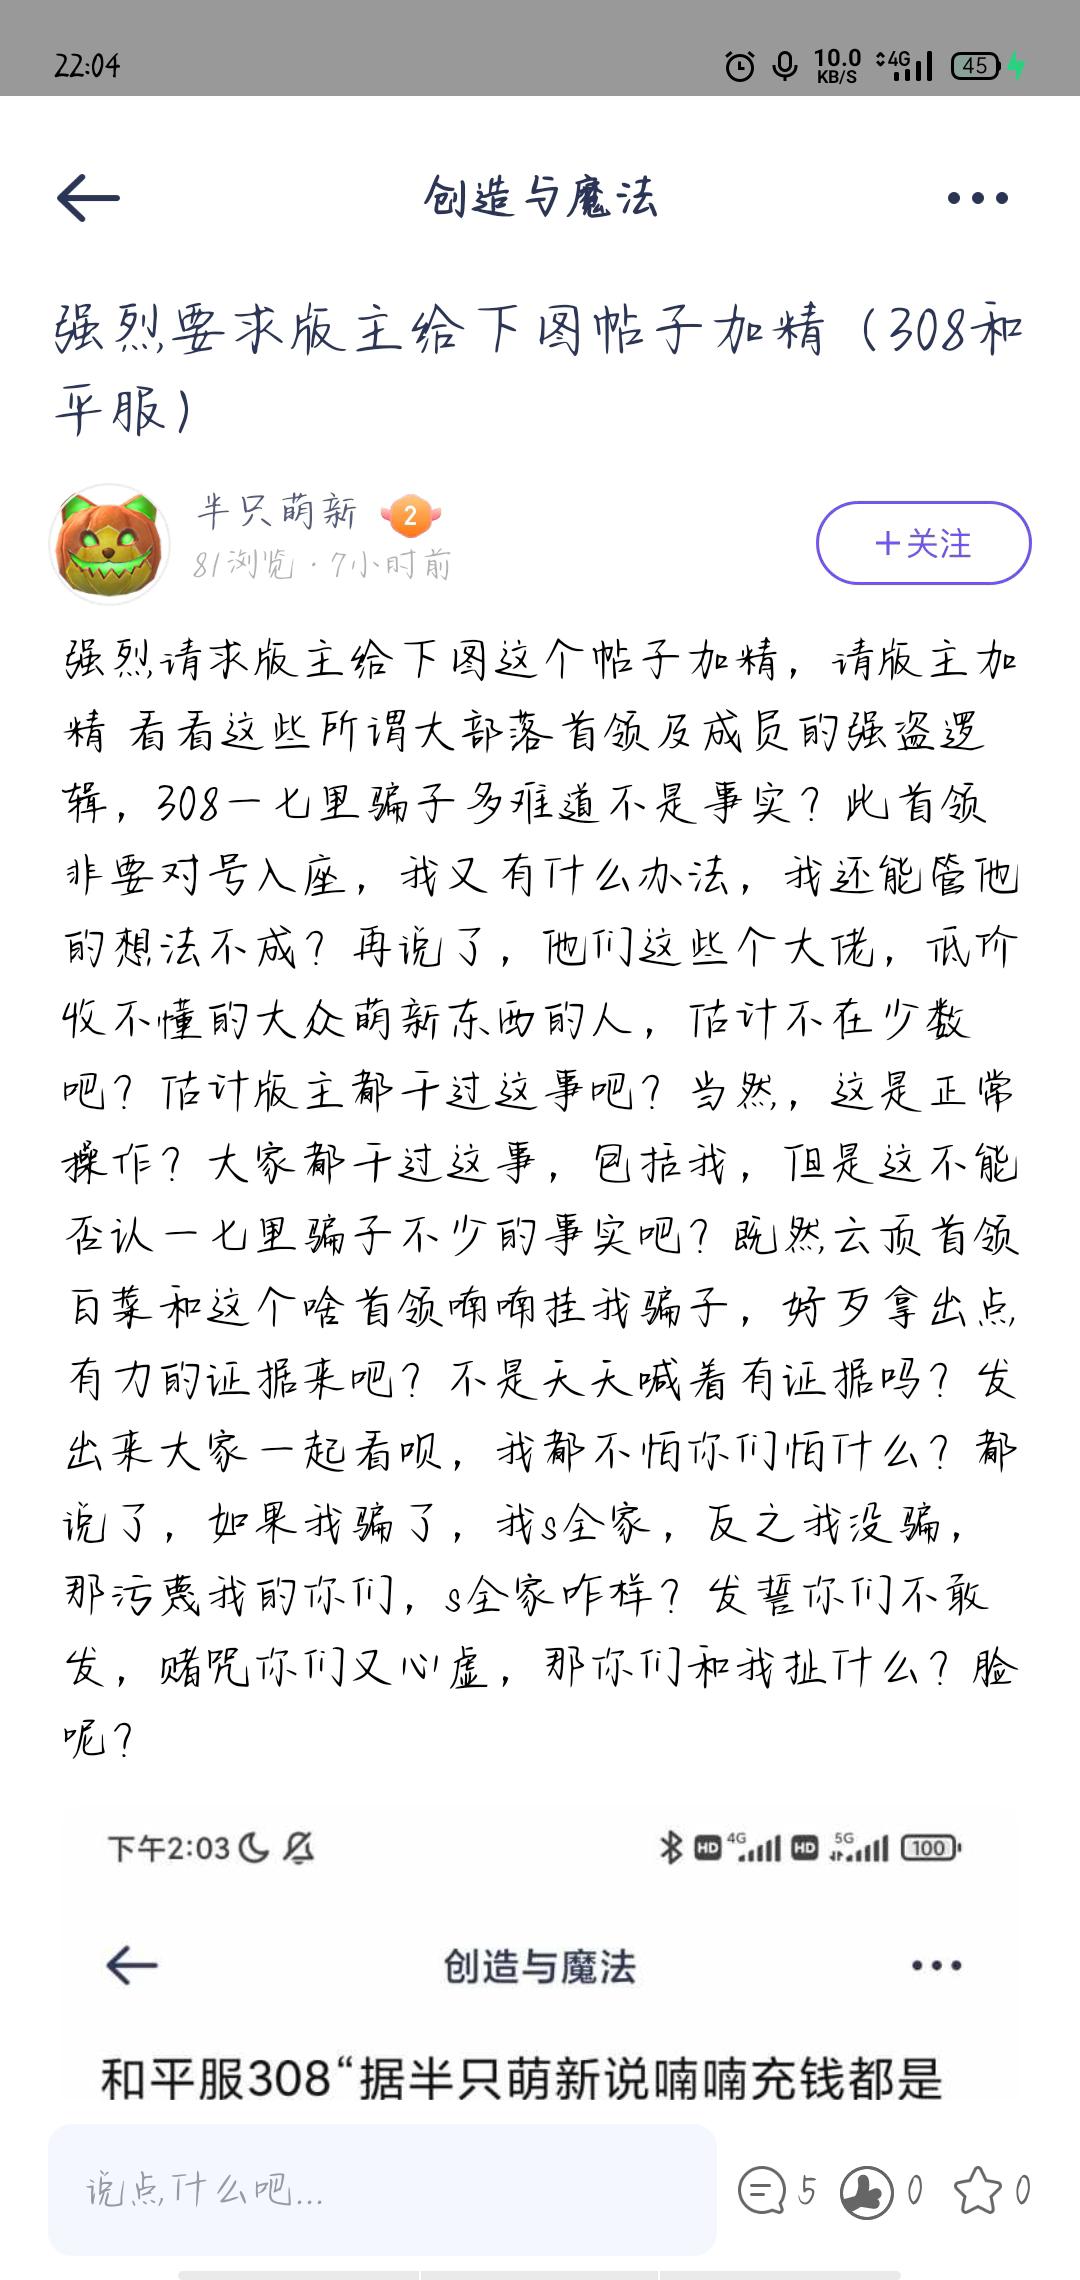 22:04
10.0 KB/S 4G 45
创造与魔法
强烈要求版主给下图帖子加精（308和
平服）
半只萌新 2
81浏览·7小时前
+关注
强烈请求版主给下图这个帖子加精，请版主加
精 看看这些所谓大部落首领及成员的强盗逻
辑，308一七里骗子多难道不是事实？此首领
非要对号入座，我又有什么办法，我还能管他
的想法不成？再说了，他们这些个大佬，低价
收不懂的大众萌新东西的人，估计不在少数
吧？估计版主都干过这事吧？当然，这是正常
操作？大家都干过这事，包括我，但是这不能
否认一七里骗子不少的事实吧？既然云顶首领
白菜和这个啥首领喃喃挂我骗子，好歹拿出点
有力的证据来吧？不是天天喊着有证据吗？发
出来大家一起看呗，我都不怕你们怕什么？都
说了，如果我骗了，我s全家，反之我没骗，
那污蔑我的你们，s全家咋样？发誓你们不敢
发，赌咒你们又心虚，那你们和我扯什么？脸
呢？
下午2:03 HD 4G HD 5G 100
创造与魔法
和平服308“据半只萌新说喃喃充钱都是
说点什么吧... 5 0 0